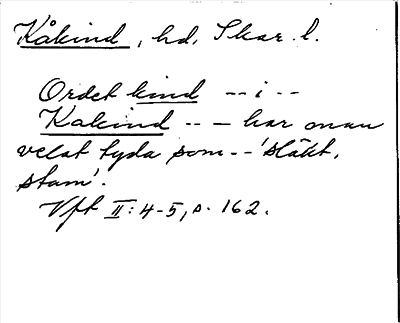 Kåkind, hd, Skar. l.
Ordet kind -- i --
Kakind -- - har man
velat tyda som -- 'släkt,
stam'.
Vft II: 4-5, s. 162.